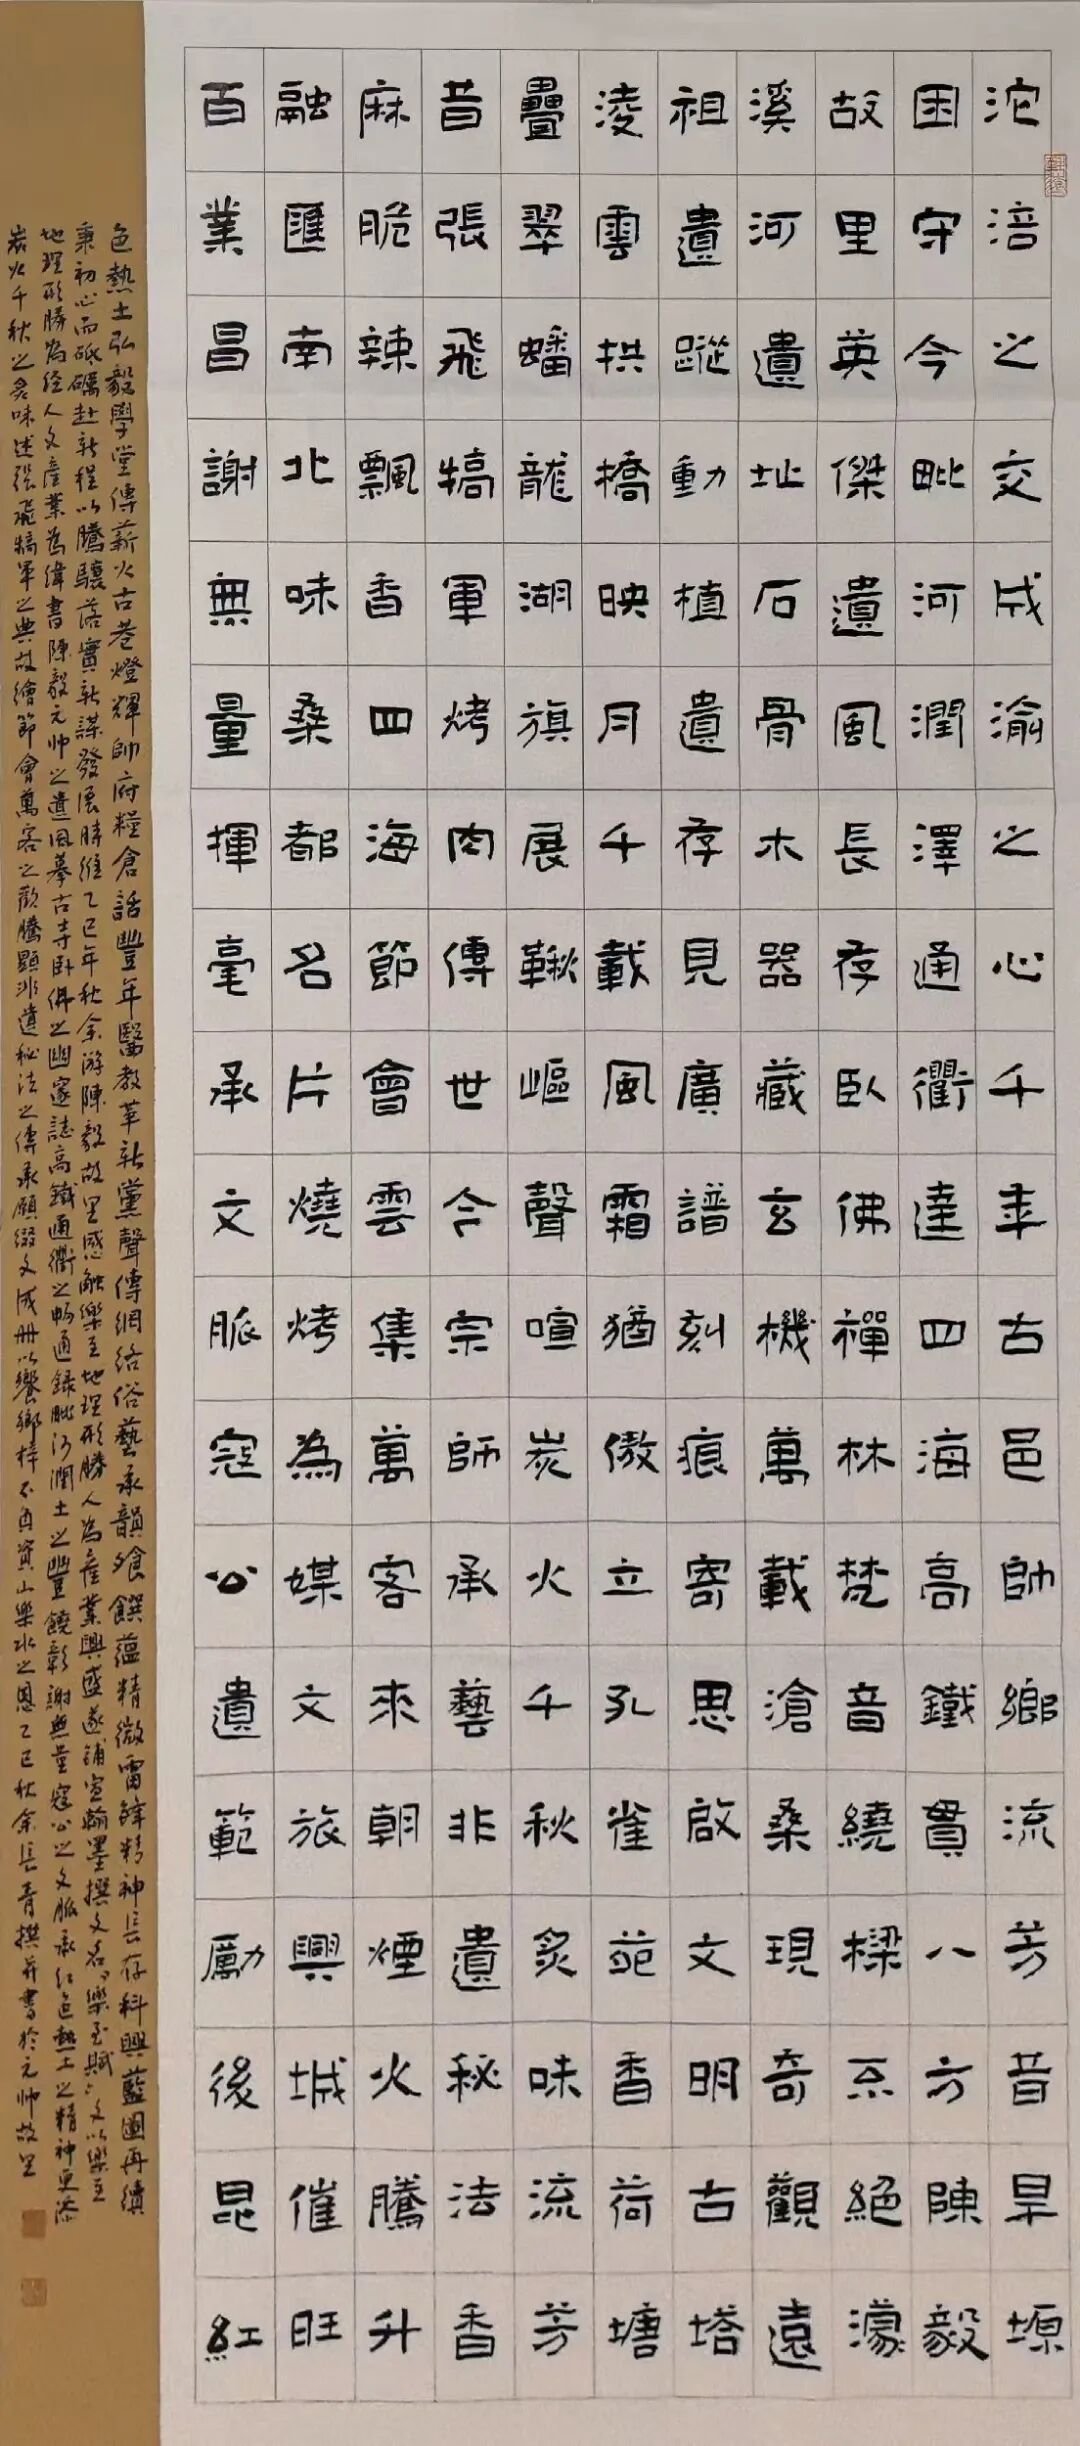 沱涪之交成渝之心千年古邑帥鄉流芳昔旱塬
困守今毗河潤澤通衢達四海高鐵貫八方陳毅
故里英傑遺風長存臥佛禪林梵音繞樑亦絕濛
溪河遺址石骨木器藏玄機萬載滄桑現奇觀遠
祖遺蹤動植遺存見廣譜刻痕寄思啟文明古塔
淩雲拱橋映月千載風霜猶傲立孔雀苑香荷塘
疊翠蟠龍湖旗展鞦嶇聲喧炭火千秋炙味流芳
昔張飛犒軍烤肉傳世今宗師承藝非遺秘法香
麻脆辣飄香四海節會雲集萬客來朝煙火騰升
融匯南北味桑都名片燒烤為媒文旅興城催旺
百業昌謝無量揮毫承文脈寇公遺範勵後昆紅
色熱土弘毅學堂傳薪火古巷燈輝帥府糧倉話豐年醫教革新黨聲傳網絡俗藝承韻飧饌蘊精微雷鋒精神長存科興藍圖再續
秉初心而砥礪赴新程以騰驤落實新謀發展時維乙巳年秋余游陳毅故里感觸樂至地理形勝人為產業興盛遂鋪宣翰墨撰文名樂至賦文以樂至
地理形勝為經人文產業為緯書陳毅元帅之遺風摹古寺卧佛之幽邃誌高鐵通衢之暢通錄毗河潤土之豐饒彰謝無量寇公之文脈承红色熱土之精神更添
炭火千秋之炙味述張飛犒軍之典故繪節會萬客之歡騰顯非遺秘法之傳承願綴文成冊以饗鄉梓不負資山樂水之恩乙巳秋余長青撰并書於元帅故里